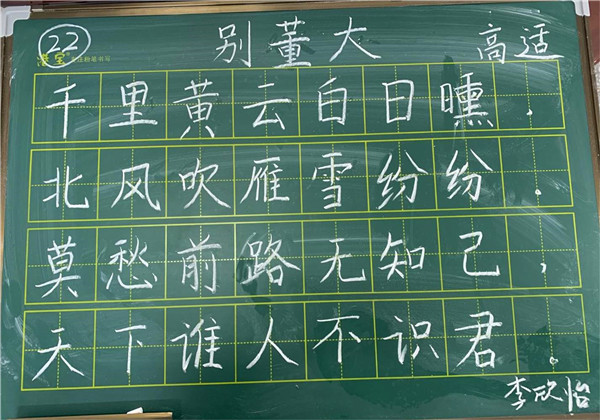 22
别董大 高适
千里黄云白日曛，
北风吹雁雪纷纷。
莫愁前路无知己，
天下谁人不识君。
李欣怡